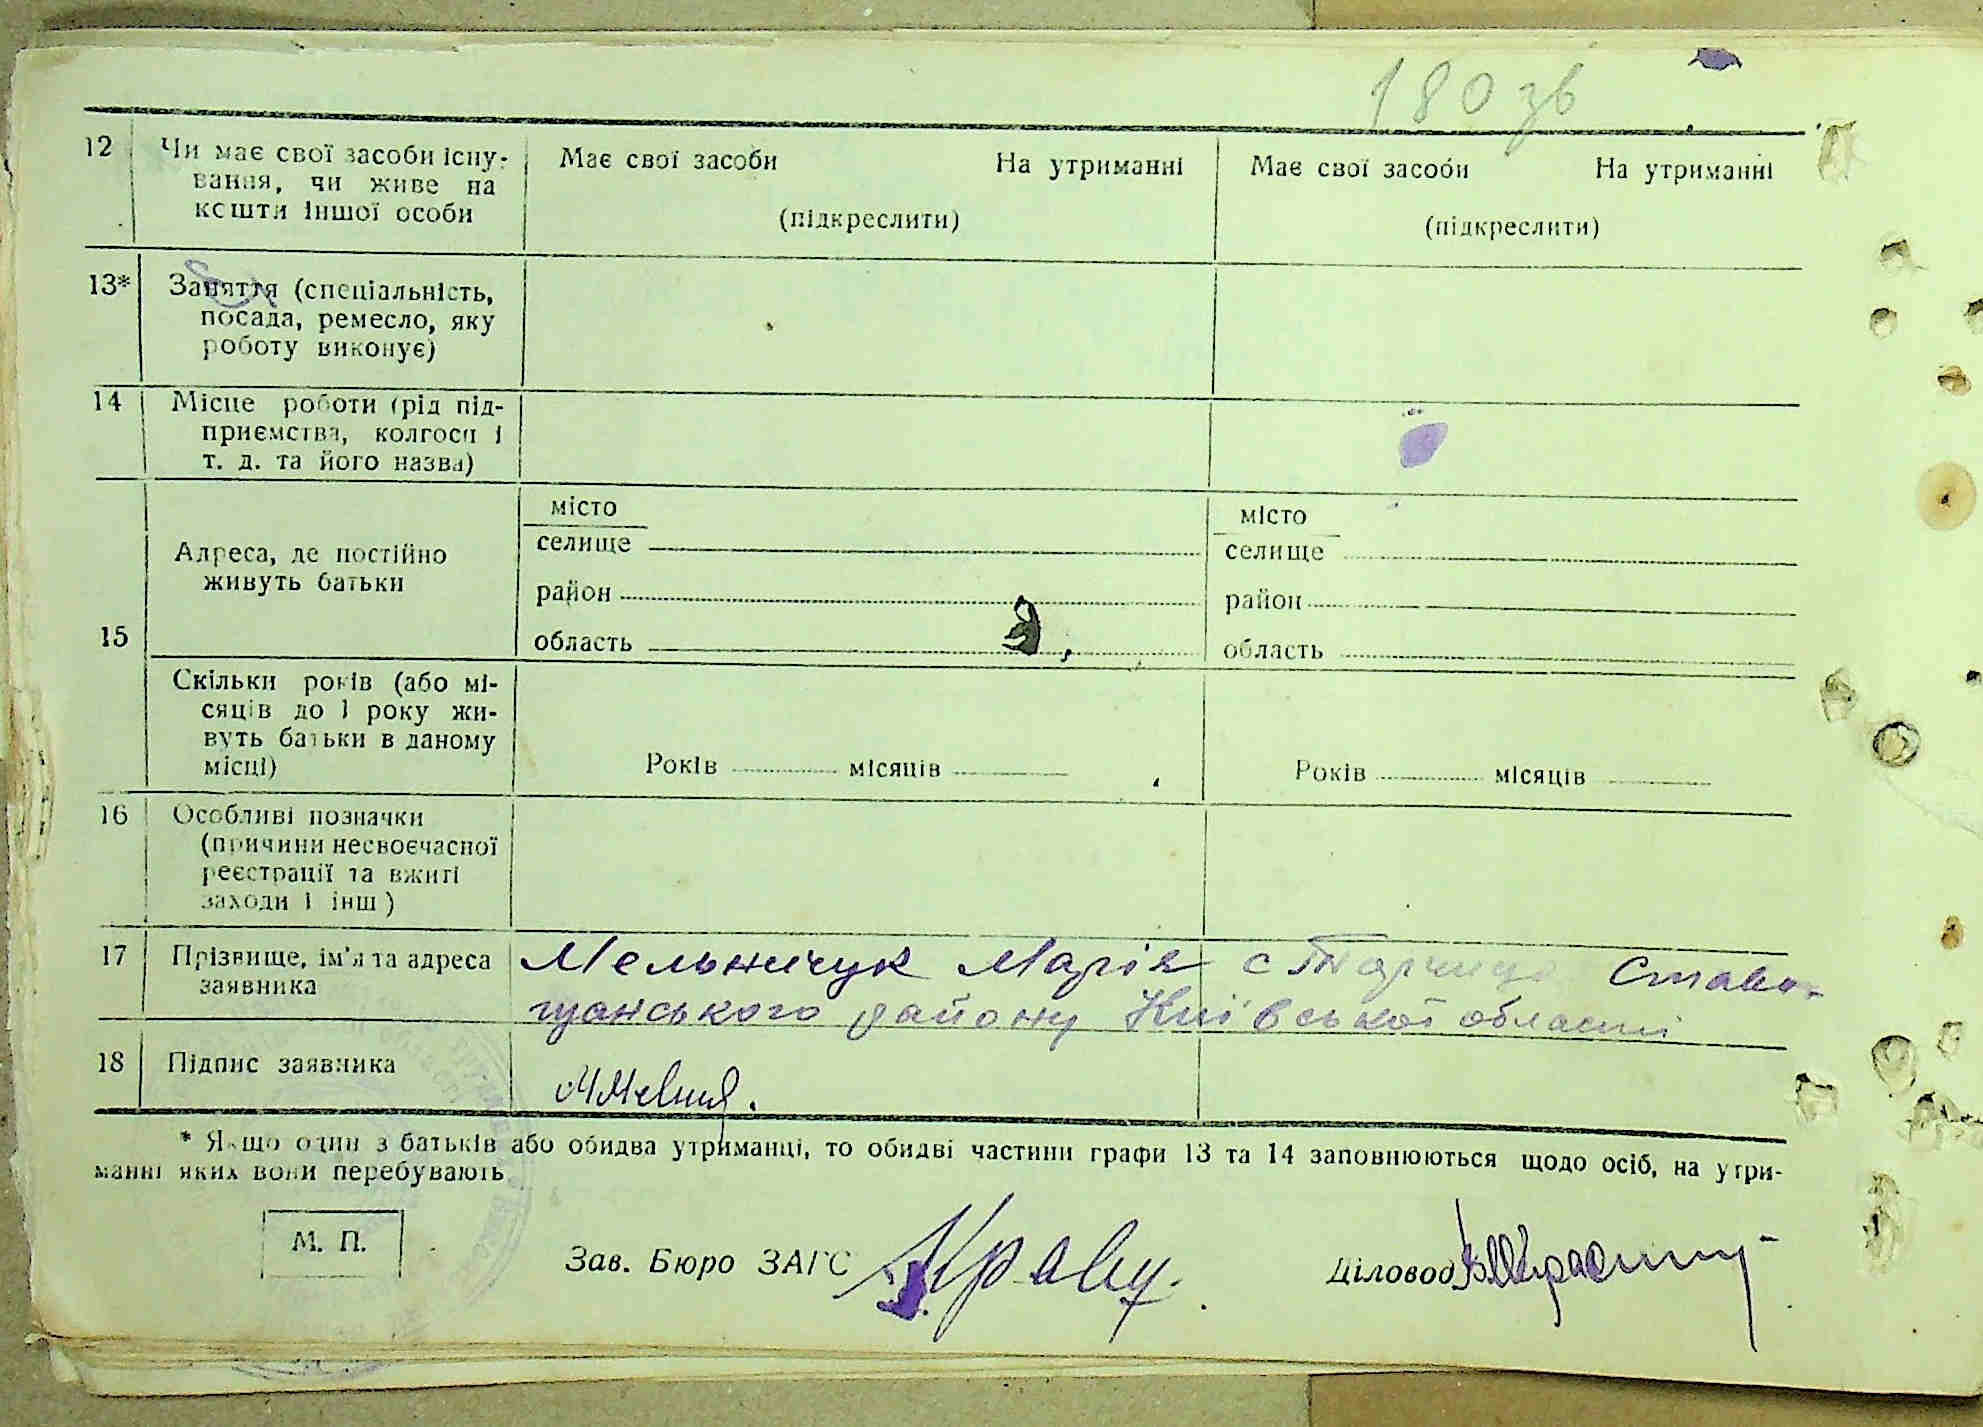 180 зв
12 Чи має свої засоби існу- Має свої засоби На утриманні Має свої засоби На утриманні
вання, чи живе на
кошти іншої особи (підкреслити) (підкреслити)
13* Заняття (спеціальність,
посада, ремесло, яку
роботу виконує)
14 Місце роботи (рід під-
приємства, колгосп і
т. д. та його назва)
місто місто
Адреса, де постійно селище селище
живуть батьки район район
15 область область
Скільки років (або мі-
сяців до 1 року жи-
вуть батьки в даному
місці) Років місяців Років місяців
16 Особливі позначки
(причини несвоєчасної
реєстрації та вжиті
заходи і інш)
17 Прізвище, ім'я та адреса Мельничук Марія с Стави-
заявника щанського району Київської області
18 Підпис заявника
* Якщо один з батьків або обидва утриманці, то обидві частини графи 13 та 14 заповнюються щодо осіб, на утри-
манні яких вони перебувають
М. П. Зав. Бюро ЗАГС Діловод